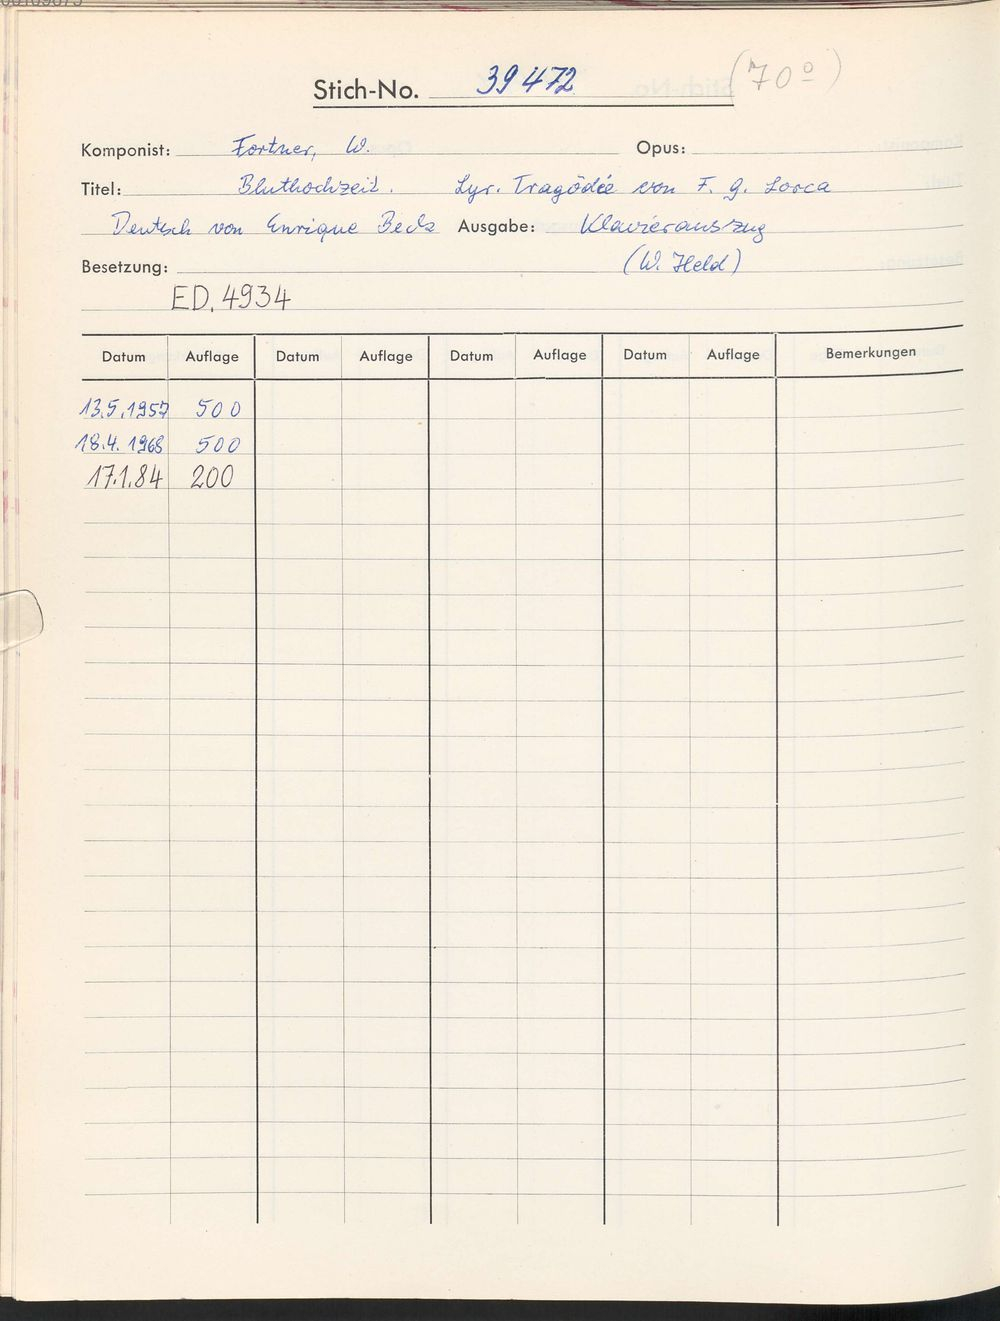 Stich-No. 39472 (70º)
Komponist: Fortner, W. Opus:
Titel: Bluthochzeit. Lyr. Tragödie von F. G. Lorca
Deutsch von Enrique Beck Ausgabe: Klavierauszug
Besetzung: (W. Held)
ED. 4934
Datum Auflage Datum Auflage Datum Auflage Datum Auflage Bemerkungen
13.5.1957 500
18.4.1968 500
17.1.84 200